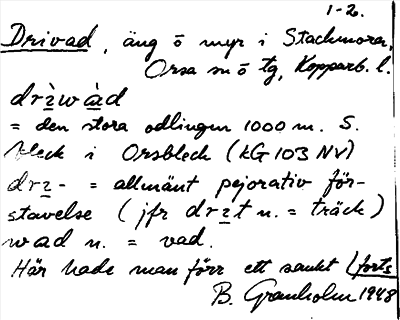 1-2.
Drivad, äng ö myr i Stackmoren,
Orsa sn ö tg, Kopparb. l.
drìwàd
= den stora odlingen 1000 m. S.
bleck i Orsbleck (kG 103 NV)
drı- = allmänt pejorativ för-
stavelse (jfr drıt n. = träck)
wad n. = vad.
Här hade man förr ett sankt (forts
B. Granholm 1948